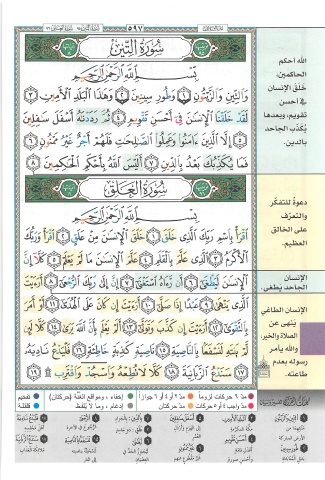 ٥٩٧
سُورَةُ التِّينِ
بِسْمِ اللَّهِ الرَّحْمَٰنِ الرَّحِيمِ
وَالتِّينِ وَالزَّيْتُونِ ١ وَطُورِ سِينِينَ ٢ وَهَٰذَا الْبَلَدِ الْأَمِينِ ٣
لَقَدْ خَلَقْنَا الْإِنسَٰنَ فِي أَحْسَنِ تَقْوِيمٍ ٤ ثُمَّ رَدَدْنَٰهُ أَسْفَلَ سَٰفِلِينَ
٥ إِلَّا الَّذِينَ ءَامَنُوا وَعَمِلُوا الصَّٰلِحَٰتِ فَلَهُمْ أَجْرٌ غَيْرُ مَمْنُونٍ ٦
فَمَا يُكَذِّبُكَ بَعْدُ بِالدِّينِ ٧ أَلَيْسَ اللَّهُ بِأَحْكَمِ الْحَٰكِمِينَ ٨
سُورَةُ الْعَلَقِ
بِسْمِ اللَّهِ الرَّحْمَٰنِ الرَّحِيمِ
اقْرَأْ بِاسْمِ رَبِّكَ الَّذِي خَلَقَ ١ خَلَقَ الْإِنسَٰنَ مِنْ عَلَقٍ ٢ اقْرَأْ وَرَبُّكَ
الْأَكْرَمُ ٣ الَّذِي عَلَّمَ بِالْقَلَمِ ٤ عَلَّمَ الْإِنسَٰنَ مَا لَمْ يَعْلَمْ ٥ كَلَّا إِنَّ
الْإِنسَٰنَ لَيَطْغَىٰ ٦ أَن رَّءَاهُ اسْتَغْنَىٰ ٧ إِنَّ إِلَىٰ رَبِّكَ الرُّجْعَىٰ ٨ أَرَءَيْتَ
الَّذِي يَنْهَىٰ ٩ عَبْدًا إِذَا صَلَّىٰ ١٠ أَرَءَيْتَ إِن كَانَ عَلَى الْهُدَىٰ ١١ أَوْ أَمَرَ
بِالتَّقْوَىٰ ١٢ أَرَءَيْتَ إِن كَذَّبَ وَتَوَلَّىٰ ١٣ أَلَمْ يَعْلَم بِأَنَّ اللَّهَ يَرَىٰ ١٤ كَلَّا لَئِن
لَّمْ يَنتَهِ لَنَسْفَعًا بِالنَّاصِيَةِ ١٥ نَاصِيَةٍ كَٰذِبَةٍ خَاطِئَةٍ ١٦ فَلْيَدْعُ نَادِيَهُ
١٧ سَنَدْعُ الزَّبَانِيَةَ ١٨ كَلَّا لَا تُطِعْهُ وَاسْجُدْ وَاقْتَرِب ١٩
الله أحكم
الحاكمين،
خلق الإنسان
في أحسن
تقويم، وبعدها
يكذّب الجاحد
بالدين.
دعوةٌ للتفكّر
والتعرّف
على الخالق
العظيم.
الإنسان
الجاحد يطغى.
الإنسان الطاغي
ينهى عن
الصلاة والخير،
والله يأمر
رسوله بعدم
طاعته.
مدّ ٦ حركات لزوماً مدّ ٢ أو ٤ أو ٦ جوازاً إخفاء، ومواقع الغنّة (حركتان) تفخيم
مدّ واجب ٤ أو ٥ حركات مدّ حركتان إدغام، وما لا يُلفظ قلقلة